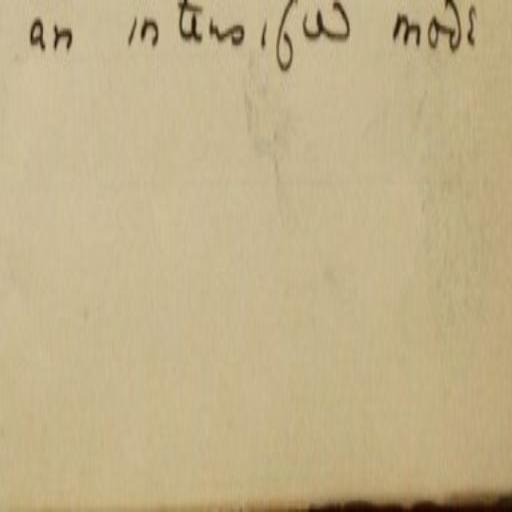 an intensified mode